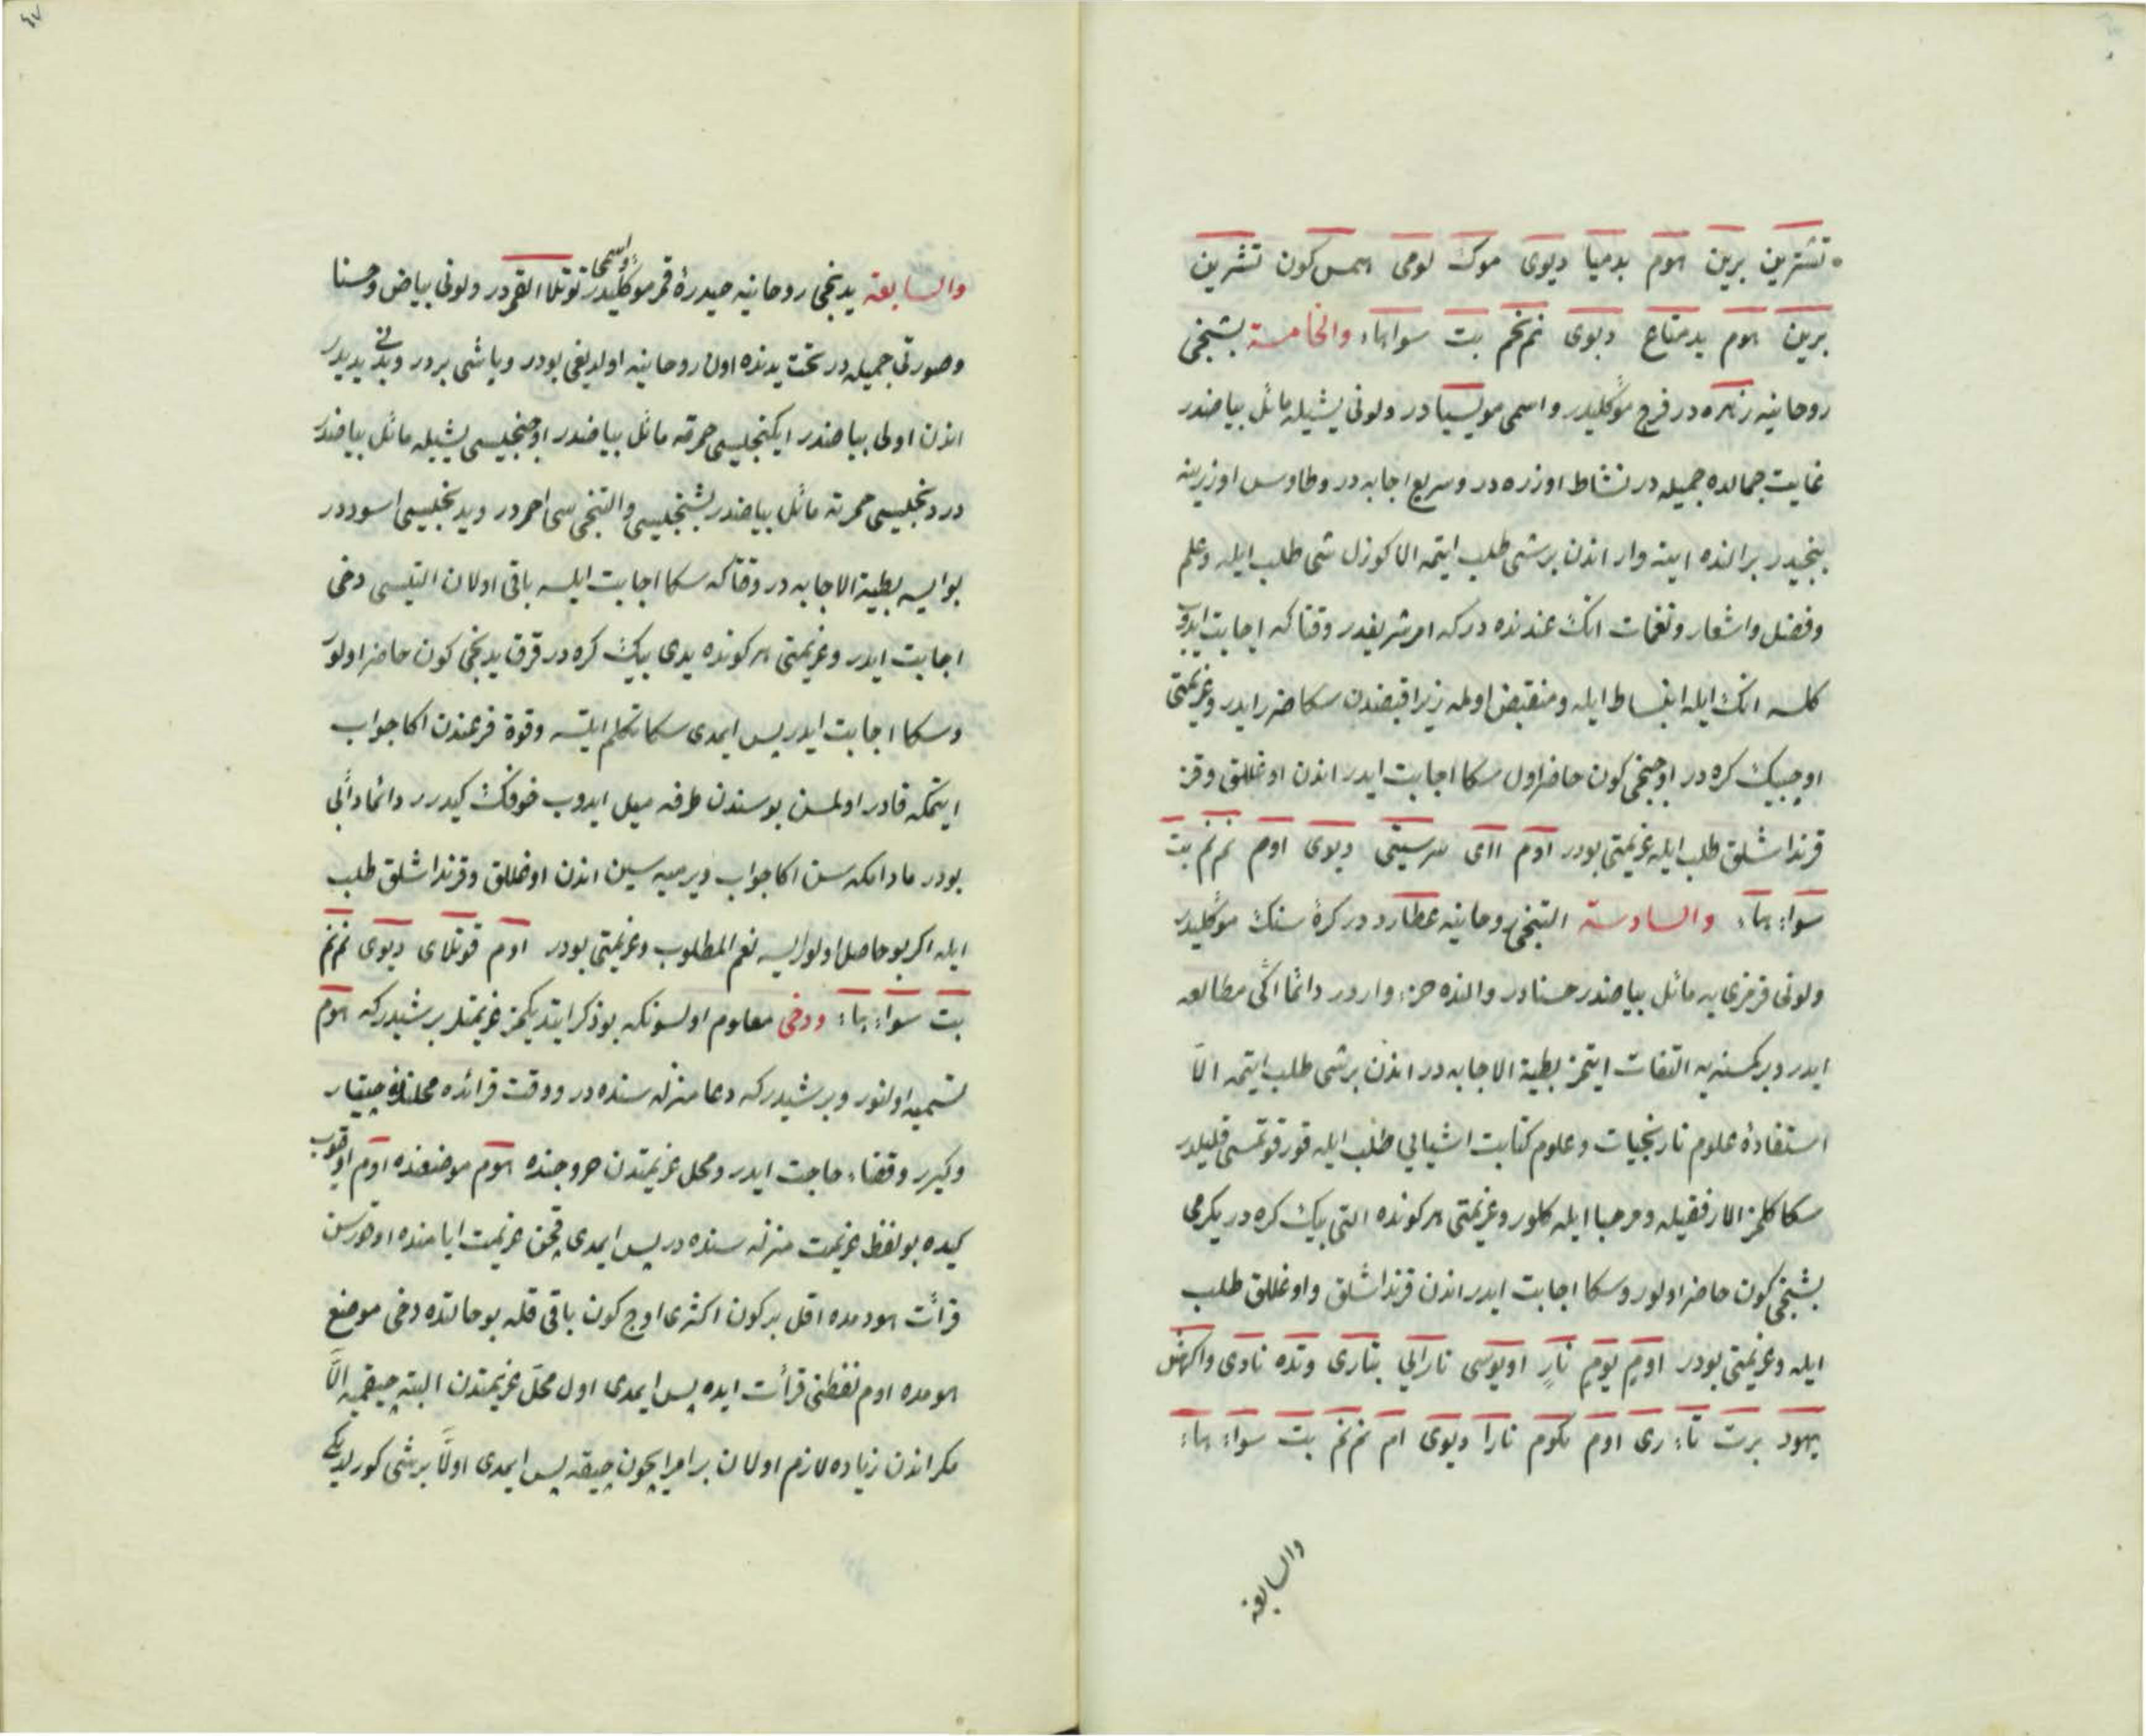 تشترین برین هوم بدمیا دیوی موک لومی همس کون تشرین
برین هوم بدمتاع دیوی نم نحم بت سواهاء والخامسة بشنجی
روحانیه زهره در فرج موکلیدر واسمی مویسیا در ولونی یشیله مائل بیاضدر
غایت جمالده جمیله در نشاط اوزره در وسریع اجابه در وطاوس اوزرینه
بنجیدر برالنده اینه وار اندن برشی طلب ایتمه الا کوزل شی طلب ایله وعلم
وفضل واشعار ونغمات انک عندنده در که امر شریفدر وقتاکه اجابت ایدوب
کلسه انک ایله انبساط ایله ومنقبض اولمه زیرا قبضدن سکا ضرر ایدر وعزیمتی
اوچبیک کره در اوچنجی کون حاضر اول سکا اجابت ایدر اندن اوغللق وقز
قرنداشلق طلب ایله عزیمتی بودر اوم اای سرسیتی دیوی اوم نم نم بت
سواء هاء والسادسة التنجی روحانیه عطارد در کرهٔ سنک موکلیدر
ولونی قرمزی یه مائل بیاضدر حسنا در والنده جزء واردر دائما اکی مطالعه
ایدر وبرکسنه یه التفات ایتمز بطیئة الاجابه در اندن برشی طلب ایتمه الّا
استفادهٔ علوم تاریخیات وعلوم کتابت اشیایی طلب ایله قورقوتمسی قلیلدر
سکا کلمز الا رفقیله ومرحبا ایله کلور وعزیمتی هر کونده التی بیک کره در یکرمی
بشنجی کون حاضر اولور وسکا اجابت ایدر اندن قرنداشلق واوغللق طلب
ایله وعزیمتی بودر اوم یوم نار اویوسی نارالی بتاری وتده نادی واکهش
یهود برت تاء ری اوم بکوم نارا دیوی ام نم نم بت سواء هاء
والسابعه
والسابعة یدنجی روحانیه حیدرهٔ قمر موکلیدر واسمی توتلا القمر در ولونی بیاض وحسنا
وصورتی جمیله در تحت یدنده اون روحانیه اولدیغی بودر وباشی بردر وبدنی یدیدر
اندن اولی بیاضدر ایکنجیسی حمرته مائل بیاضدر اوچنجیسی یشیله مائل بیاضدر
دردنجیسی حمرته مائل بیاضدر بشنجیسی والتنجی سی احمردر ویدنجیسی اسوددر
بوایسه بطیئة الاجابه در وقتاکه سکا اجابت ایلسه باقی اولان التیسی دخی
اجابت ایدر وعزیمتی هر کونده یدی بیک کره در قرق یدنجی کون حاضر اولور
وسکا اجابت ایدر پس ایمدی سکا تکلم ایتسه وقوة فزعندن اکا جواب
ایتمکه قادر اولمسن بوسندن طرفه میل ایدوب خوفک کیدرر دائما دأبی
بودر مادامکه سن اکا جواب ویرمیه سین اندن اوغللق وقرنداشلق طلب
ایله اکر بو حاصل اولورایسه نعم المطلوب وعزیمتی بودر اوم قوتلای دیوی نم نم
بت سواء هاء ودخی معلوم اولسونکه بو ذکر ایتدیکمز عزیمتلر برشیدر که هوم
تسمیه اولنور وبر شیدر که دعا منزله سنده در ووقت قرائده محلندن چیقار
وکیرر وقضاء حاجت ایدر ومحل عزیمتدن خروجنده هوم موضعنده اوم اوقیوب
کیده بو لفظ عزیمت منزله سنده در پس ایمدی قچن عزیمت ایامنده اوتورسن
قرائت هودمده اقل برکون اکثری اوچ کون باقی قله بو حالتده دخی موضع
هومده اوم لفظنی قرأت ایده پس ایمدی اول محلّ عزیمتدن البته چیقمیه الّا
مکر اندن زیاده لازم اولان برامر ایچون چیقه پس ایمدی اولّا برشی کورلدیکی